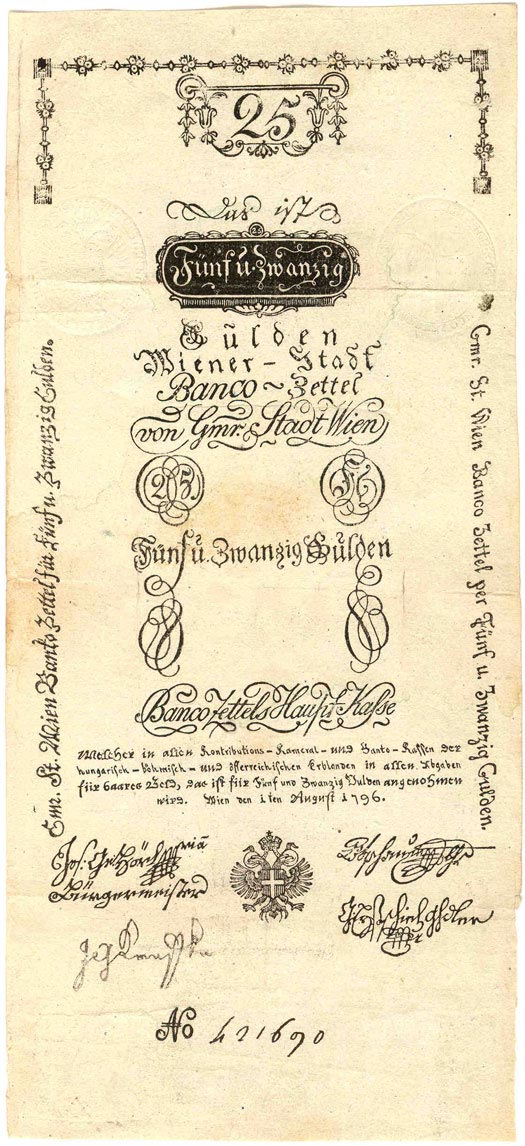 25
Das ist
Fünf u. Zwanzig
Gulden
Wiener - Stadt
Banco - Zettel
von Gmr. Stadt Wien
25 Fl
Fünf u. Zwanzig Gulden
Banco Zettels Haupt-Kasse
Welcher in allen Kontributions-Kameral-und Banko-Kassen der
hungarisch-böhmisch-und österreichischen Erblanden in allen Abgaben
für baares Geld, das ist für Fünf und Zwanzig Gulden angenohmen
wird. Wien den 1ten August 1796.
Jos.
Bürgermeister
No 421690
Gmr. St. Wien Banko Zettel für Fünf u. Zwanzig Gulden.
Gmr. St. Wien Banco Zettel per Fünf u. Zwanzig Gulden.